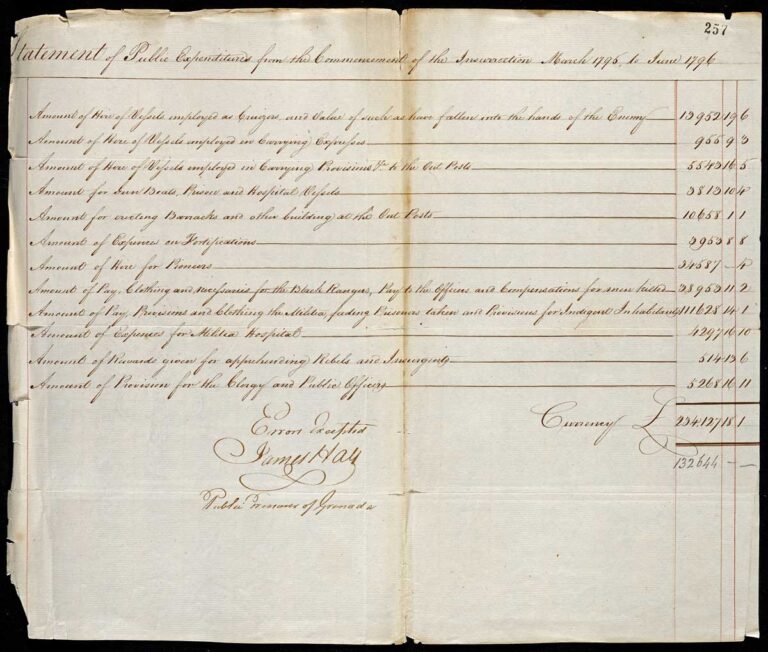 257
Statement of Public Expenditures from the Commencement of the Insurrection March 1795 to June 1796
Amount of Hire of Vessels employed as Cruizers, and Value of such as have fallen into the hands of the Enemy 13952 19 6
Amount of Hire of Vessels employed in Carrying Expresses 955 9 3
Amount of Hire of Vessels employed in Carrying Provisions &c to the Out Posts 5543 16 5
Amount for Gun Boats, Prison and Hospital Vessels 3813 10 4
Amount for erecting Barracks and other building at the Out Posts 10658 1 1
Amount of Expence on Fortifications 3953 8 8
Amount of Hire for Pioneers 34587 - 4
Amount of Pay, Clothing and necessaries for the Black Rangers, Pay to the Officers and Compensations for men killed 38953 11 2
Amount of Pay, Provisions and Clothing the Militia, feeding Prisoners taken and Provisions for Indigent Inhabitants 111628 14 1
Amount of Expences for Militia Hospital 4297 16 10
Amount of Rewards given for apprehending Rebels and Insurgents 514 13 6
Amount of Provision for the Clergy and Public Officers 5268 16 11
Currency £ 234127 18 1
132644 - -
Errors Excepted
James Hay
Public Treasurer of Grenada